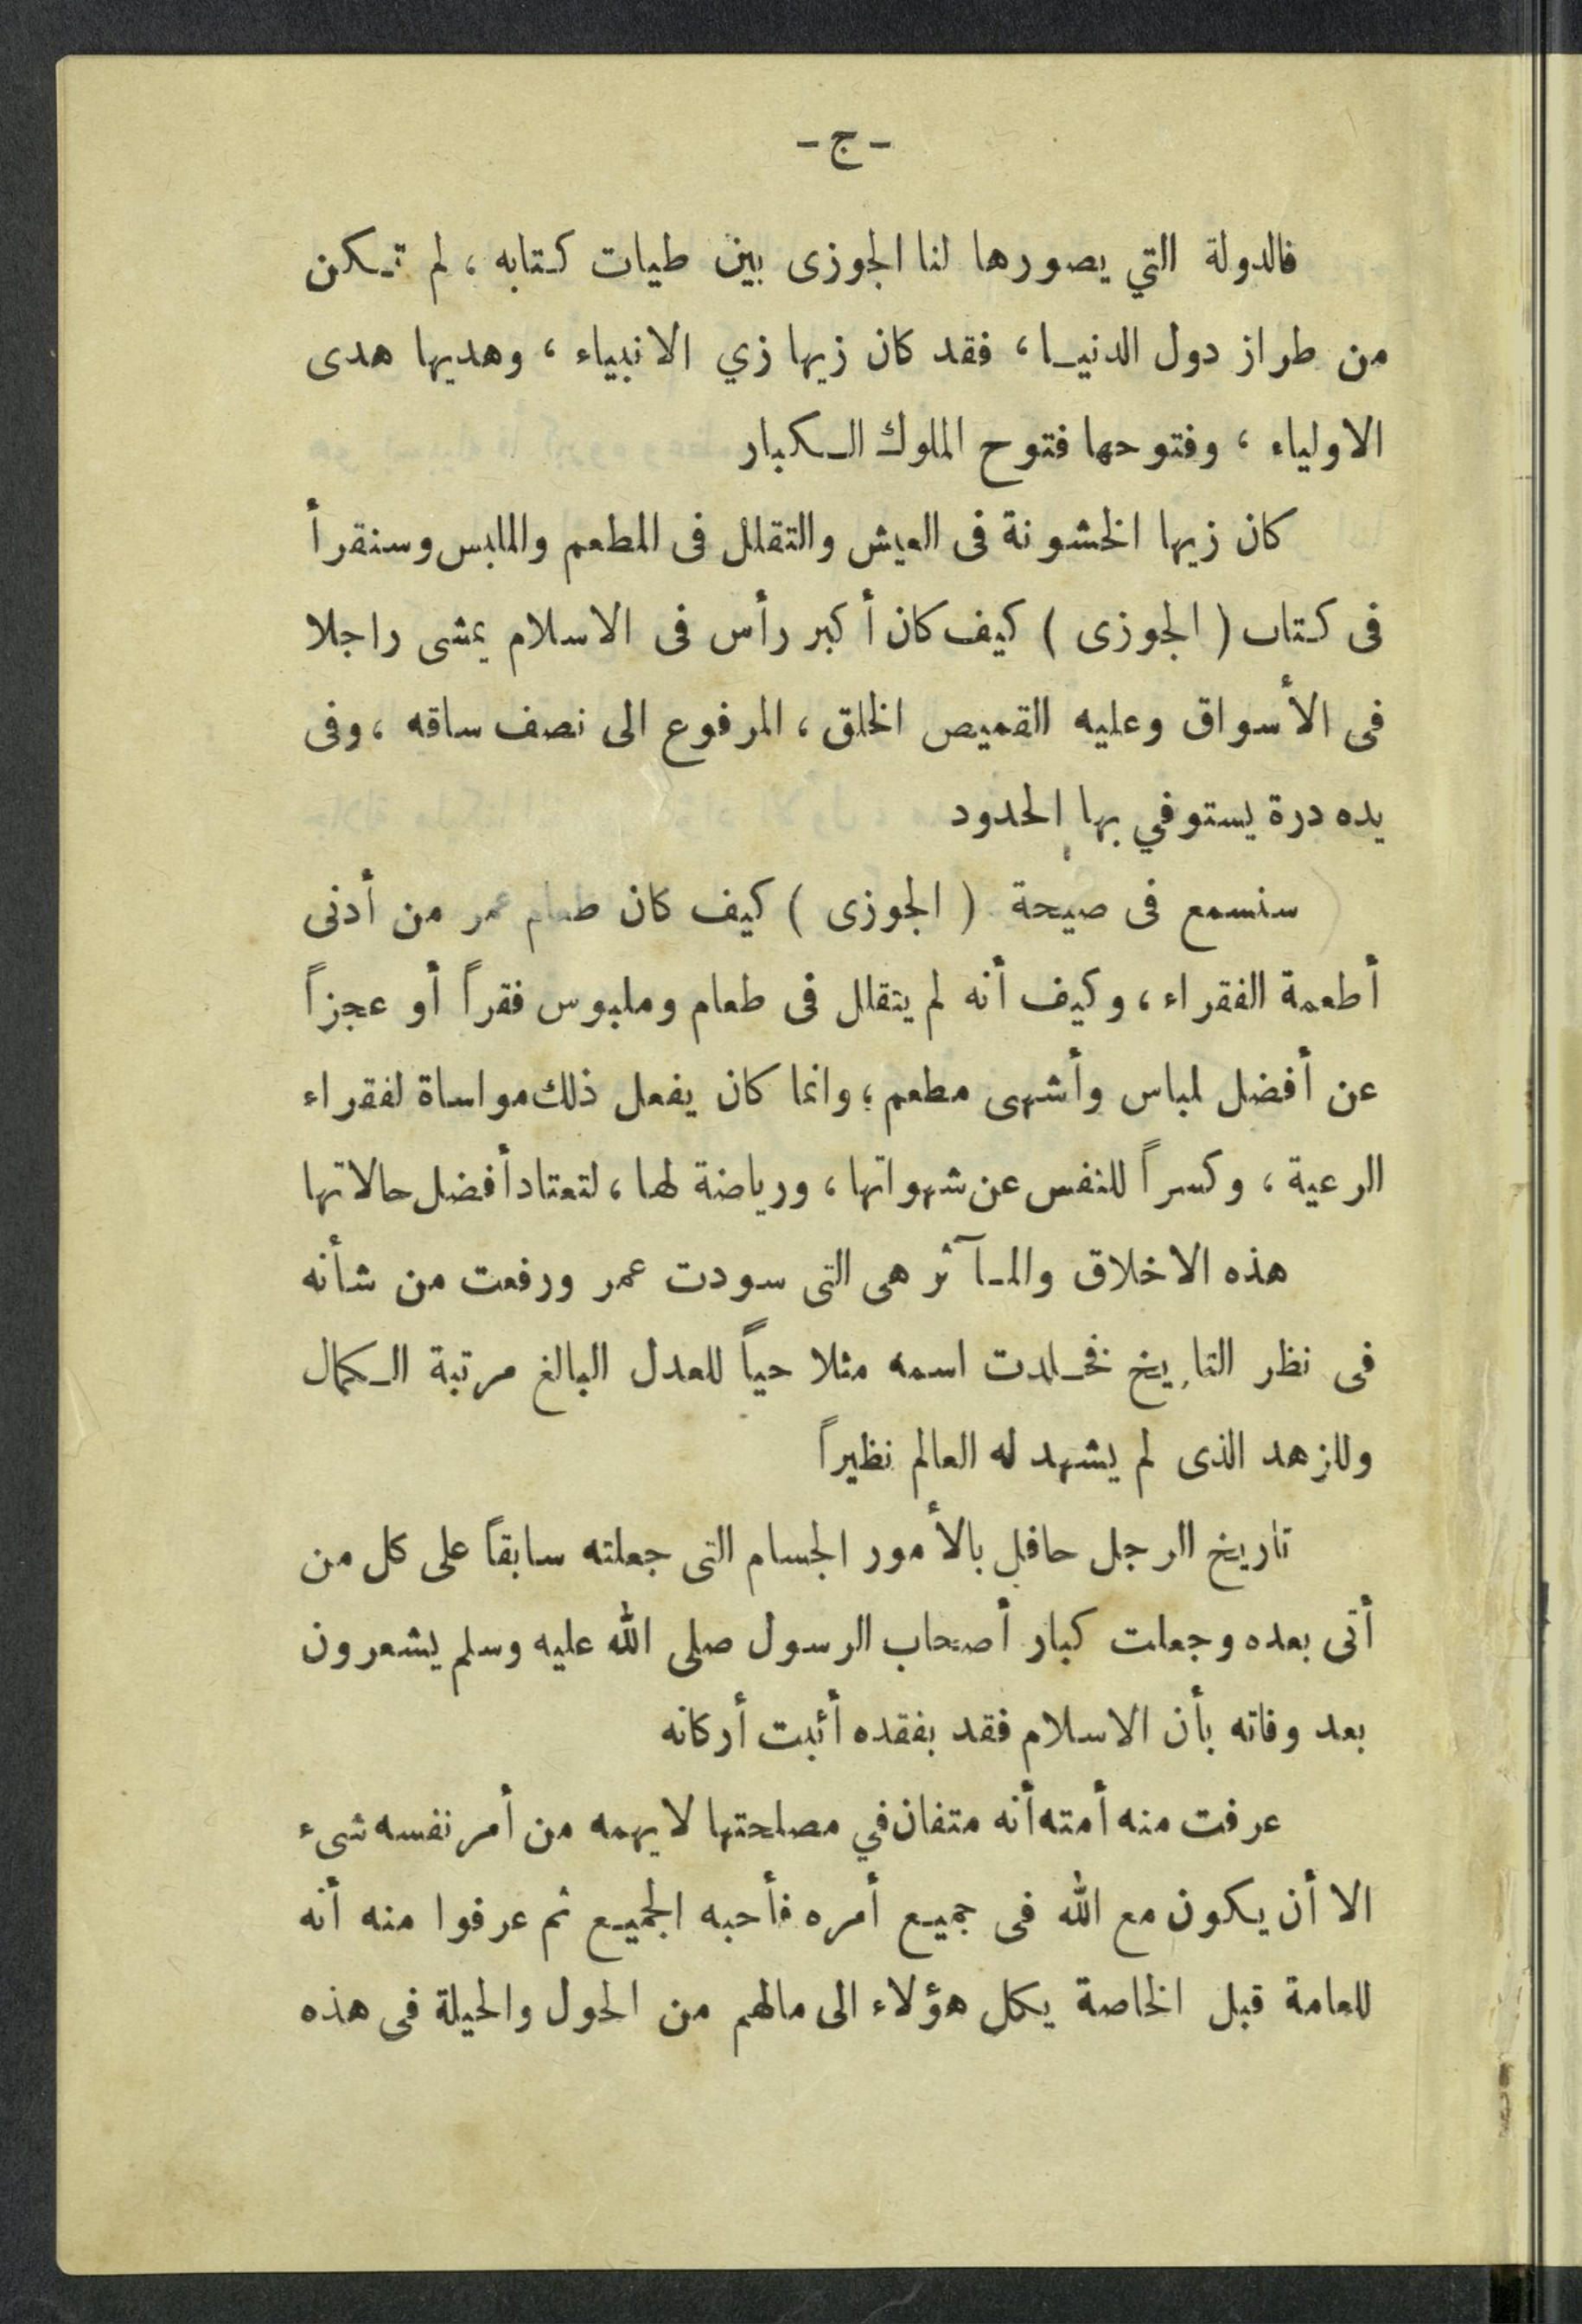 - ج -
فالدولة التي يصورها لنا الجوزى بين طيات كتابه ، لم تكن
من طراز دول الدنيا ، فقد كان زيها زي الانبياء ، وهديها هدى
الاولياء ، وفتوحها فتوح الملوك الكبار
كان زيها الخشونة فى العيش والتقلل فى المطعم والملبس وسنقرأ
فى كتاب ( الجوزى ) كيف كان أكبر رأس فى الاسلام يمشى راجلا
فى الأسواق وعليه القميص الخلق ، المرفوع الى نصف ساقه ، وفى
يده درة يستوفي بها الحدود
سنسمع فى صيحة ( الجوزى ) كيف كان طعام عمر من أدنى
أطعمة الفقراء ، وكيف أنه لم يتقلل فى طعام وملبوس فقراً أو عجزاً
عن أفضل لباس وأشهى مطعم ؛ وانما كان يفعل ذلك مواساة لفقراء
الرعية ، وكسراً للنفس عن شهواتها ، ورياضة لها ، لتعتاد أفضل حالاتها
هذه الاخلاق والمآثر هى التى سودت عمر ورفعت من شأنه
فى نظر التاريخ فخلدت اسمه مثلا حياً للعدل البالغ مرتبة الكمال
وللزهد الذى لم يشهد له العالم نظيراً
تاريخ الرجل حافل بالأمور الجسام التى جعلته سابقاً على كل من
أتى بعده وجعلت كبار أصحاب الرسول صلى الله عليه وسلم يشعرون
بعد وفاته بأن الاسلام فقد بفقده أثبت أركانه
عرفت منه أمته أنه متفان في مصلحتها لا يهمه من أمر نفسه شىء
الا أن يكون مع الله فى جميع أمره فأحبه الجميع ثم عرفوا منه أنه
للعامة قبل الخاصة يكل هؤلاء الى مالهم من الحول والحيلة فى هذه